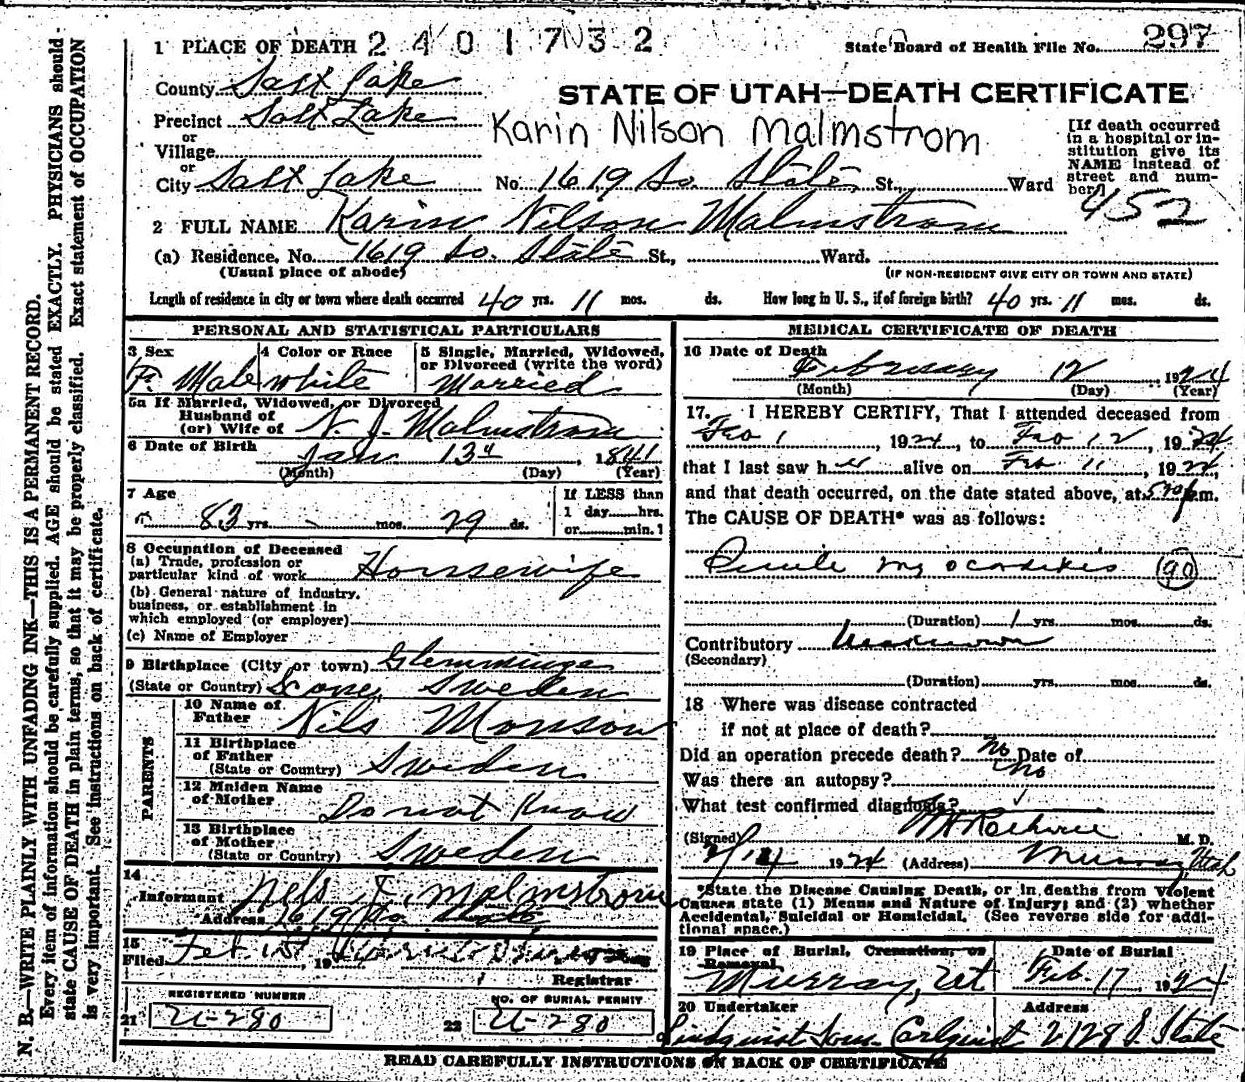 1 PLACE OF DEATH 2401732
State Board of Health File No. 297
County Salt Lake
STATE OF UTAH—DEATH CERTIFICATE
Precinct Salt Lake
Karin Nilson Malmstrom
or
Village
or
City Salt Lake No. 1619 So. State St., Ward
[If death occurred in a hospital or institution give its NAME instead of street and number.]
452
2 FULL NAME Karin Nilson Malmstrom
(a) Residence, No. 1619 So. State St., Ward.
(Usual place of abode)
(IF NON-RESIDENT GIVE CITY OR TOWN AND STATE)
Length of residence in city or town where death occurred 40 yrs. 11 mos. ds. How long in U. S., if of foreign birth? 40 yrs. 11 mos. ds.
PERSONAL AND STATISTICAL PARTICULARS
3 Sex
F. Male
4 Color or Race
white
5 Single, Married, Widowed,
or Divorced (write the word)
Married
5a If Married, Widowed, or Divorced
Husband of
(or) Wife of N. J. Malmstrom
6 Date of Birth
Jan 13th, 1841
(Month) (Day) (Year)
7 Age
83 yrs. mos. 29 ds.
If LESS than
1 day......hrs.
or......min.
8 Occupation of Deceased
(a) Trade, profession or
particular kind of work Housewife
(b) General nature of industry,
business, or establishment in
which employed (or employer)
(c) Name of Employer
9 Birthplace (City or town) Glemminge
(State or Country) Scone, Sweden
PARENTS
10 Name of
Father Nils Monson
11 Birthplace
of Father
(State or Country) Sweden
12 Maiden Name
of Mother Do not Know
13 Birthplace
of Mother
(State or Country) Sweden
14
Informant Nels J. Malmstrom
Address 1619 So. State
15
Filed Feb. 15, 19
Registrar
REGISTERED NUMBER
21 U-280
NO. OF BURIAL PERMIT
22 U-280
MEDICAL CERTIFICATE OF DEATH
16 Date of Death
February 12, 1924
(Month) (Day) (Year)
17. I HEREBY CERTIFY, That I attended deceased from
Feb 1, 1924, to Feb 12, 1924
that I last saw her alive on Feb 11, 1924,
and that death occurred, on the date stated above, at m.
The CAUSE OF DEATH* was as follows:
Senile myocarditis 90
(Duration) 1 yrs. mos. ds.
Contributory Unknown
(Secondary)
(Duration) yrs. mos. ds.
18 Where was disease contracted
if not at place of death?
Did an operation precede death? No Date of
Was there an autopsy? No
What test confirmed diagnosis?
(Signed) M. D.
2/14 1924 (Address) Murray, Utah
*State the Disease Causing Death, or in deaths from Violent
Causes state (1) Means and Nature of Injury; and (2) whether
Accidental, Suicidal or Homicidal. (See reverse side for addi-
tional space.)
19 Place of Burial, Cremation, or
Removal
Murray, Ut
Date of Burial
Feb. 17 1924
20 Undertaker
Lindquist Sons Carlquist
Address
2128 S. State
READ CAREFULLY INSTRUCTIONS ON BACK OF CERTIFICATE
N. B.—WRITE PLAINLY WITH UNFADING INK—THIS IS A PERMANENT RECORD.
Every item of information should be carefully supplied. AGE should be stated EXACTLY. PHYSICIANS should
state CAUSE OF DEATH in plain terms, so that it may be properly classified. Exact statement of OCCUPATION
is very important. See instructions on back of certificate.